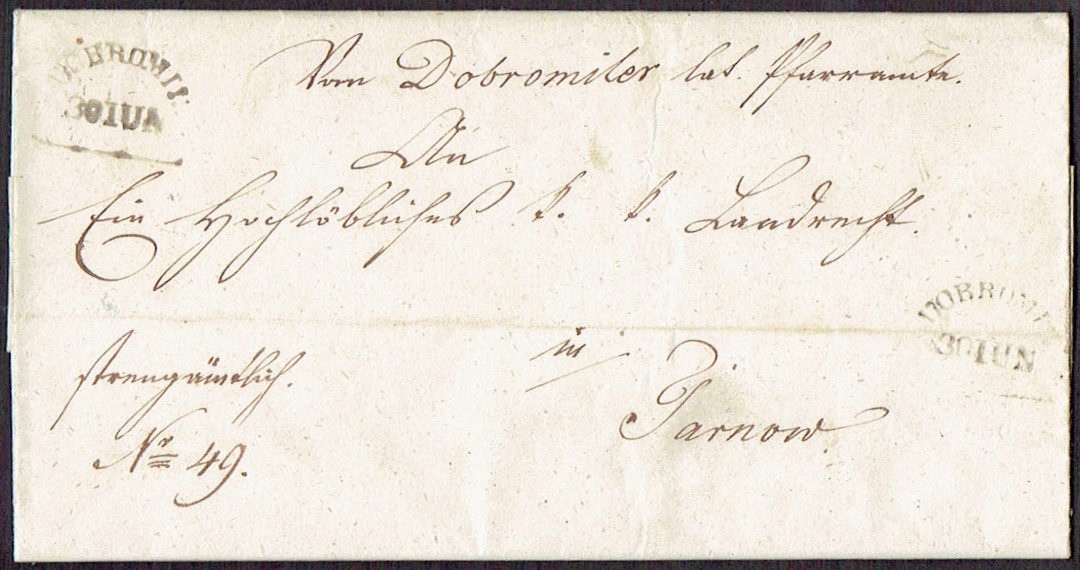 DOBROMIL
30 IUN
Vom Dobromiler lat. Pfarramte.
An
Ein Hochlöbliches k. k. Landrecht.
DOBROMI
30 IUN
in
strengämtlich.
Tarnow.
Nr 49.